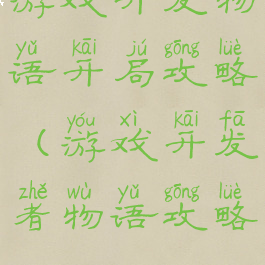 游戏开发物
yǔ kāi jú gōng lüè
语开局攻略
yóu xì kāi fā
（游戏开发
zhě wù yǔ gōng lüè
者物语攻略